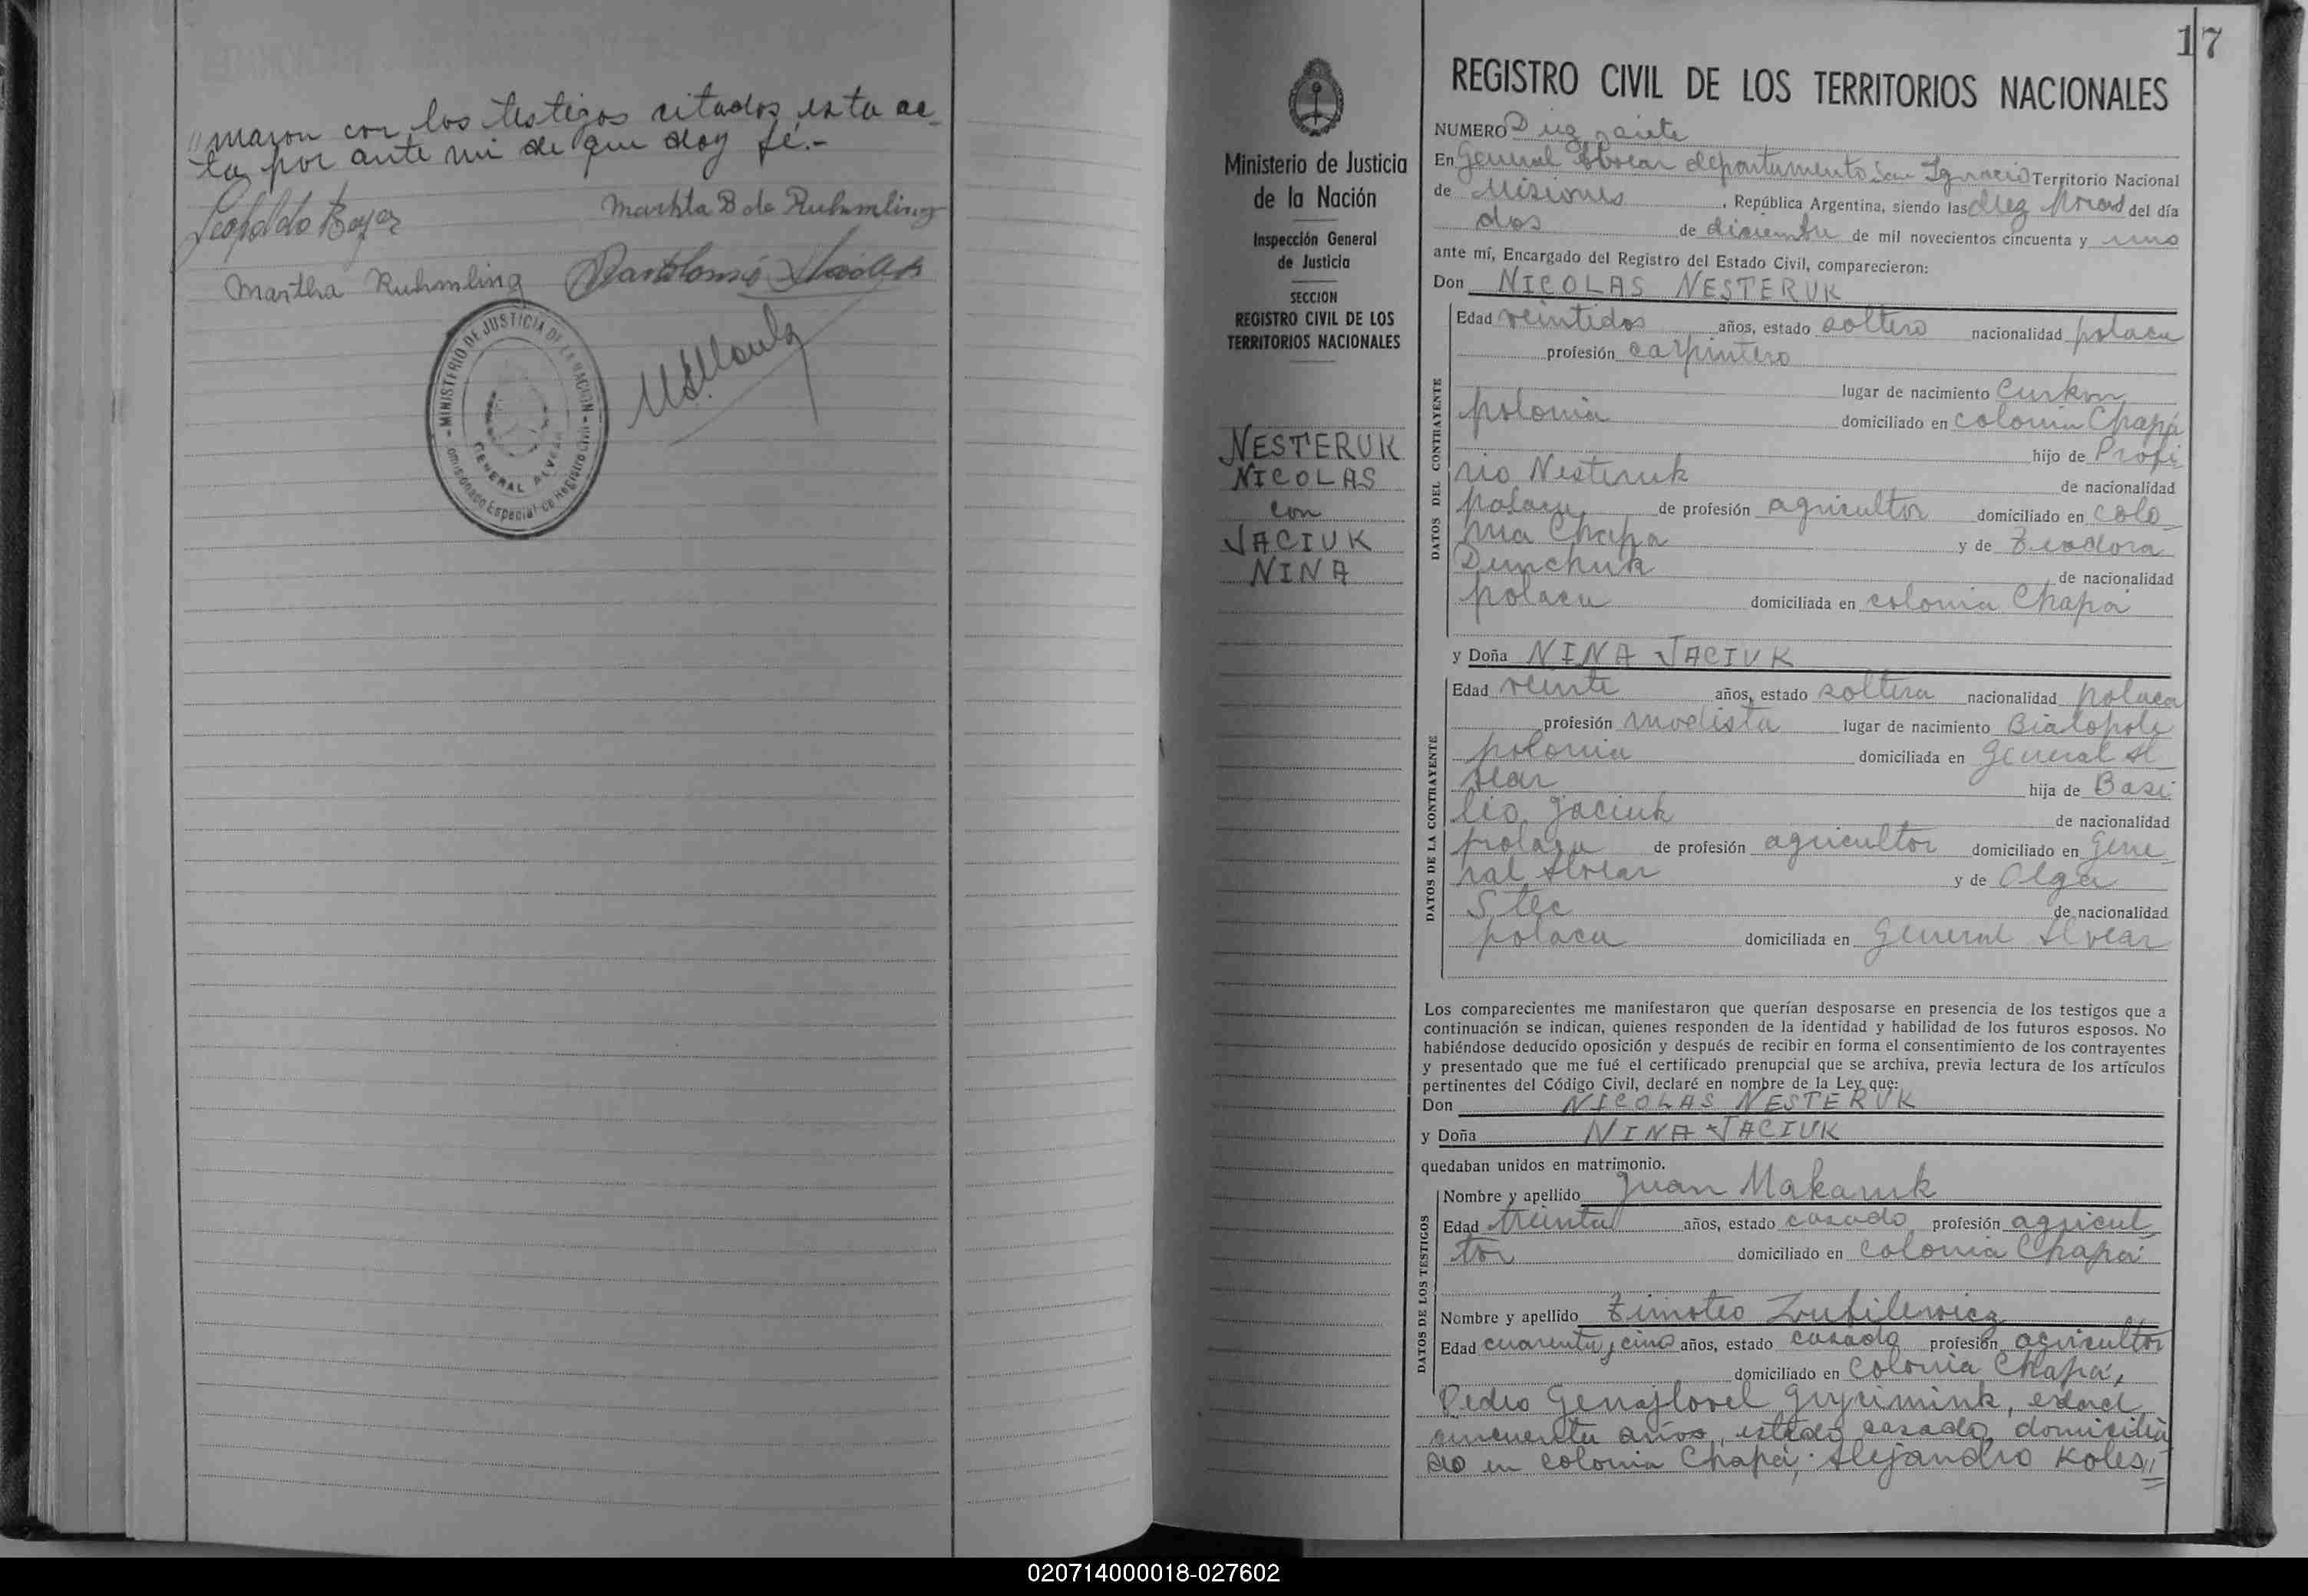 "maron con los testigos citados esta ac-
ta por ante mi de que doy fé.-
Leopoldo Beyer
Martha B de Ruhmling
Martha Ruhmling
Bartolomé
MINISTERIO DE JUSTICIA DE LA NACION
GENERAL ALVEAR
Comisionado Especial de Registro Civil
17
REGISTRO CIVIL DE LOS TERRITORIOS NACIONALES
Ministerio de Justicia
de la Nación
Inspección General
de Justicia
SECCION
REGISTRO CIVIL DE LOS
TERRITORIOS NACIONALES
NESTERUK
NICOLAS
con
JACIUK
NINA
NUMERO Diez y siete
En General Alvear departamento San Ignacio Territorio Nacional
de Misiones, República Argentina, siendo las diez horas del día
dos de diciembre de mil novecientos cincuenta y uno
ante mí, Encargado del Registro del Estado Civil, comparecieron:
Don NICOLAS NESTERUK
DATOS DEL CONTRAYENTE
Edad veintidos años, estado soltero nacionalidad polaca
profesión carpintero
lugar de nacimiento
polonia domiciliado en colonia Chapá
hijo de Profi
rio Nesteruk de nacionalidad
polaca de profesión agricultor domiciliado en colo
nia Chapa y de Teodora
Demchuk de nacionalidad
polaca domiciliada en colonia Chapá
y Doña NINA JACIUK
DATOS DE LA CONTRAYENTE
Edad veinte años, estado soltera nacionalidad polaca
profesión modista lugar de nacimiento Bialopole
polonia domiciliada en General Al
vear hija de Basi
lio Jaciuk de nacionalidad
polaca de profesión agricultor domiciliado en Gene
ral Alvear y de Olga
Stec de nacionalidad
polaca domiciliada en General Alvear
Los comparecientes me manifestaron que querían desposarse en presencia de los testigos que a
continuación se indican, quienes responden de la identidad y habilidad de los futuros esposos. No
habiéndose deducido oposición y después de recibir en forma el consentimiento de los contrayentes
y presentado que me fué el certificado prenupcial que se archiva, previa lectura de los artículos
pertinentes del Código Civil, declaré en nombre de la Ley que:
Don NICOLAS NESTERUK
y Doña NINA JACIUK
quedaban unidos en matrimonio.
DATOS DE LOS TESTIGOS
Nombre y apellido Juan Makaruk
Edad treinta años, estado casado profesión agricul
tor domiciliado en colonia Chapá
Nombre y apellido Timoteo
Edad cuarenta y cinco años, estado casado profesión agricultor
domiciliado en Colonia Chapá,
Pedro edad
cincuenta años, estado casado, domicilia
do en colonia Chapá; Alejandro Koles"
020714000018-027602